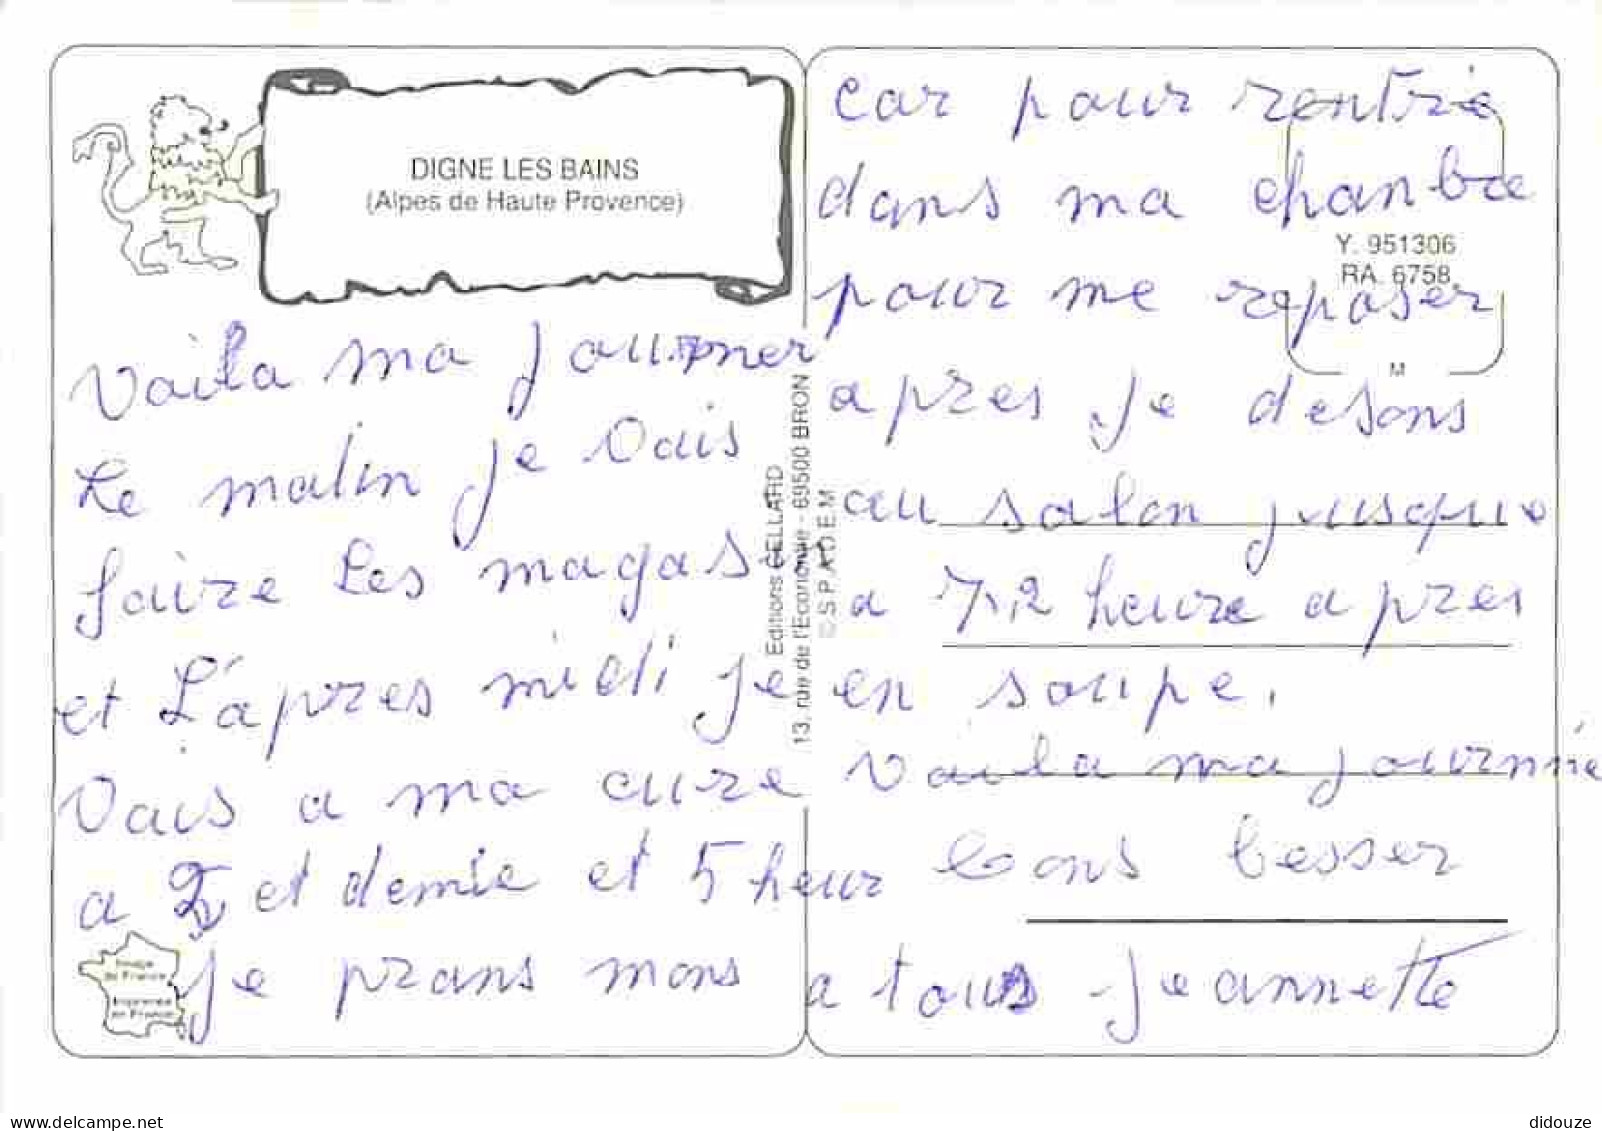 DIGNE LES BAINS
(Alpes de Haute Provence)
voila ma journer
Le matin je vais
faire Les magasin
et L'apres midi je
vais a ma cure
a 2 et demie et 5 heur
je prans mons
Editions GELLARD
13, rue de l'Economie - 69500 BRON
© S.P.A.D.E.M
Image
de France
Imprimée
en France
car pour rentrie
dans ma chanbre
Y. 951306
RA. 6758
pour me reposer
M
apres je desons
au salon jusque
a 7,2 heure apres
en soupe.
voila ma journnie
bons besser
a tous Jeannette
delcampe.net
didouze